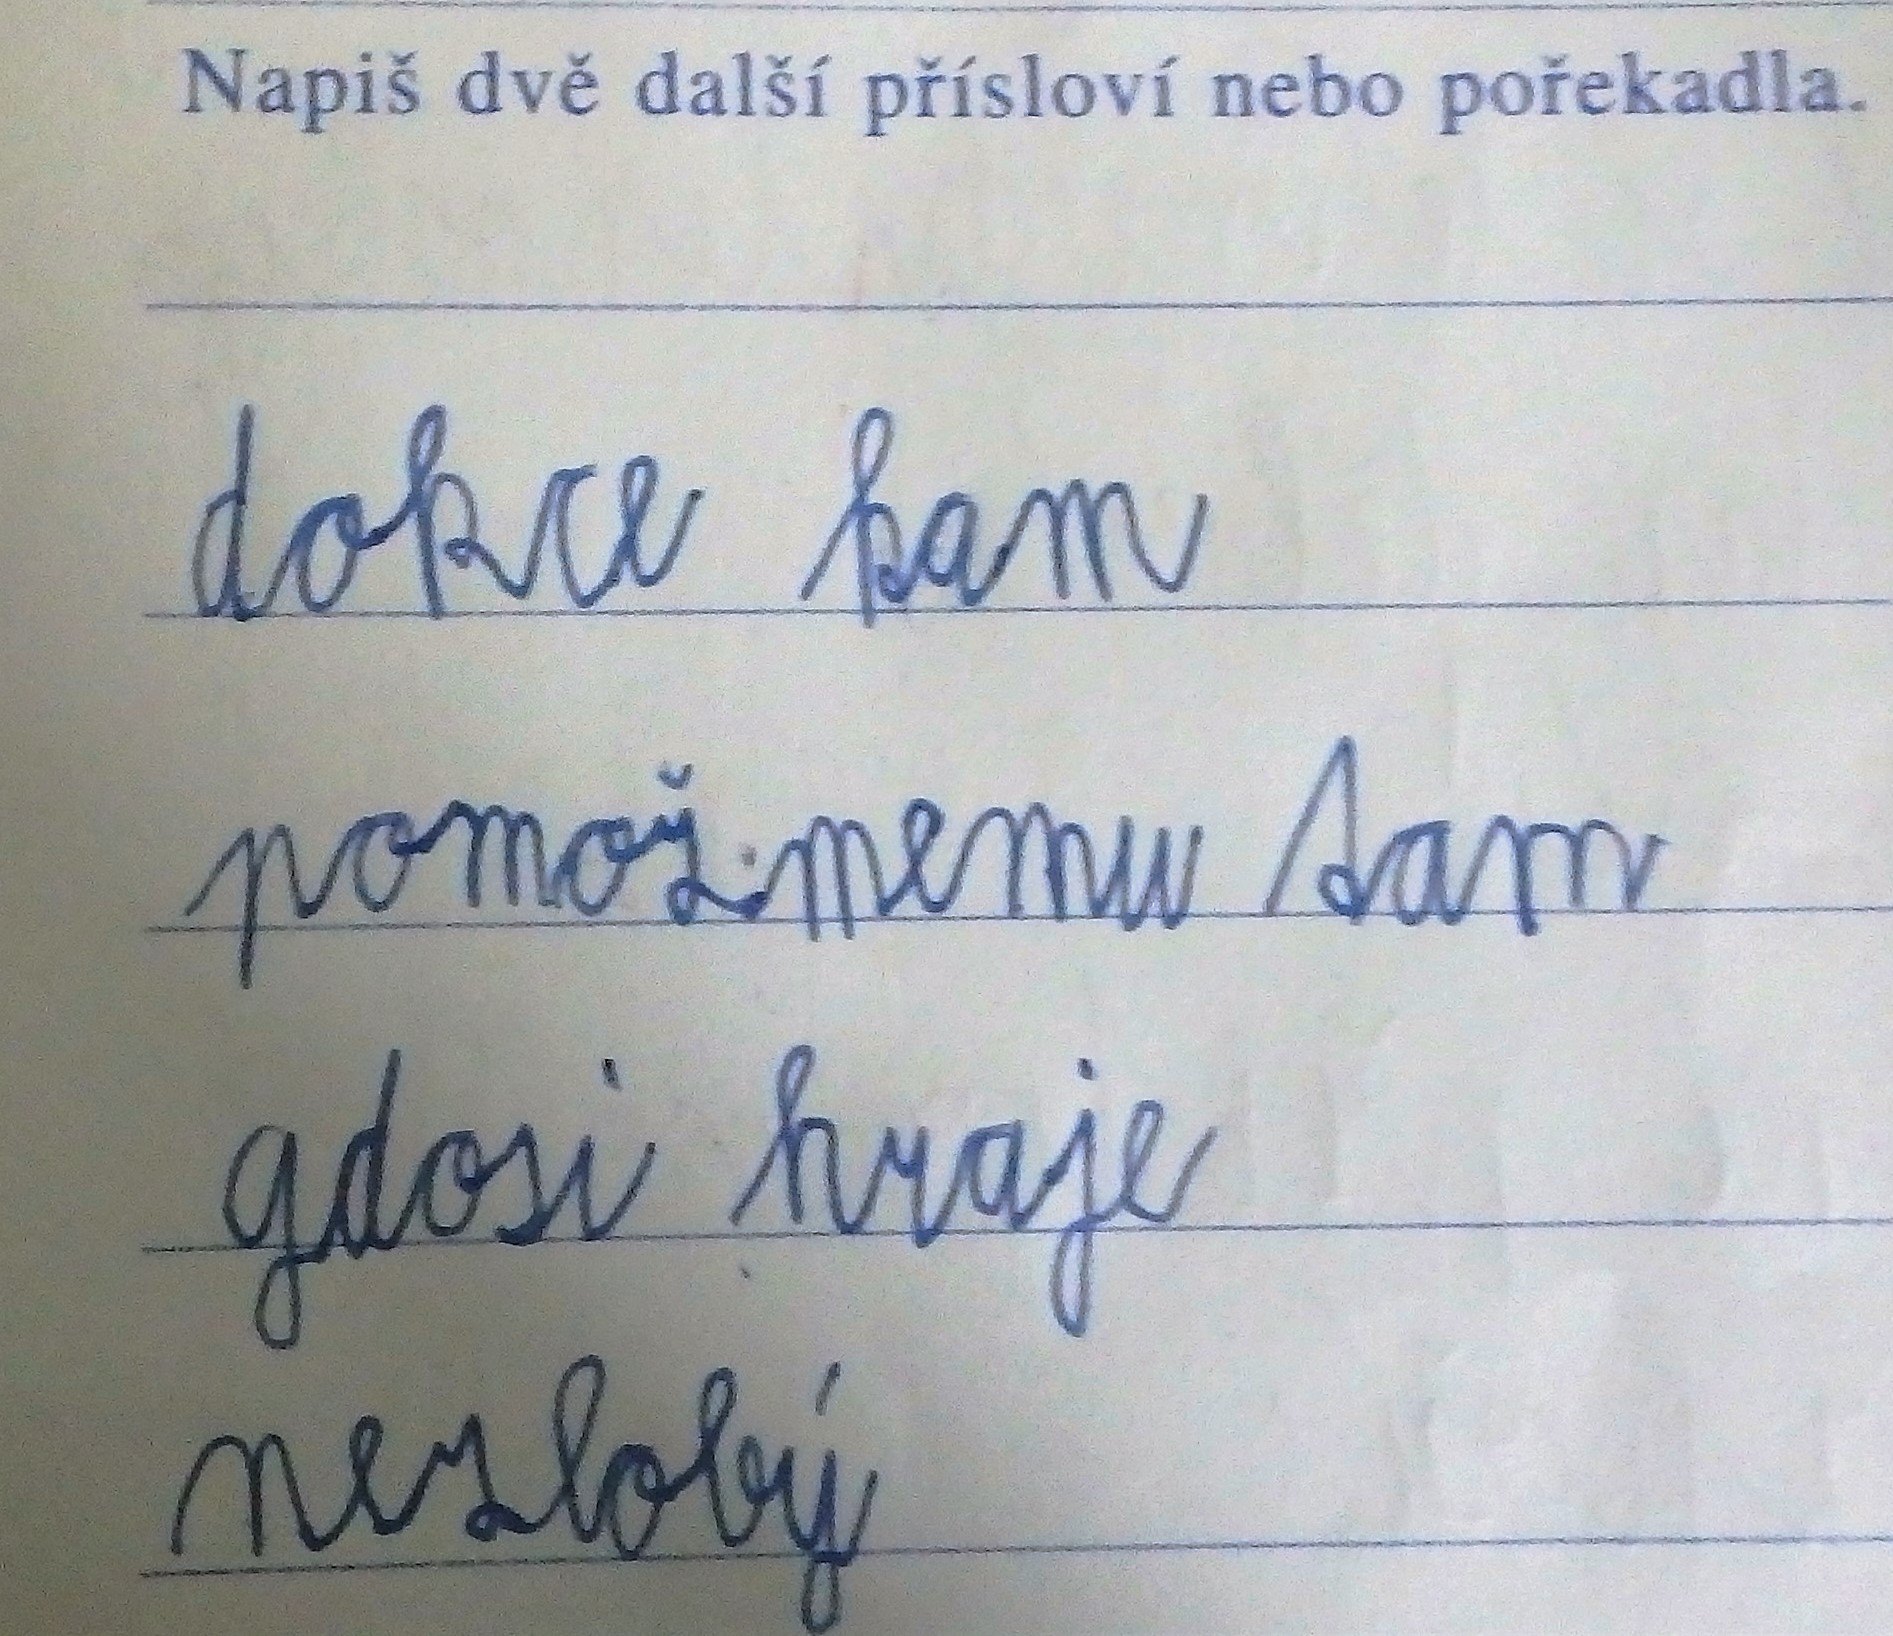 Napiš dvě další přísloví nebo pořekadla.
dokce kam
pomož memu sam
gdosi hraje
nezlobý